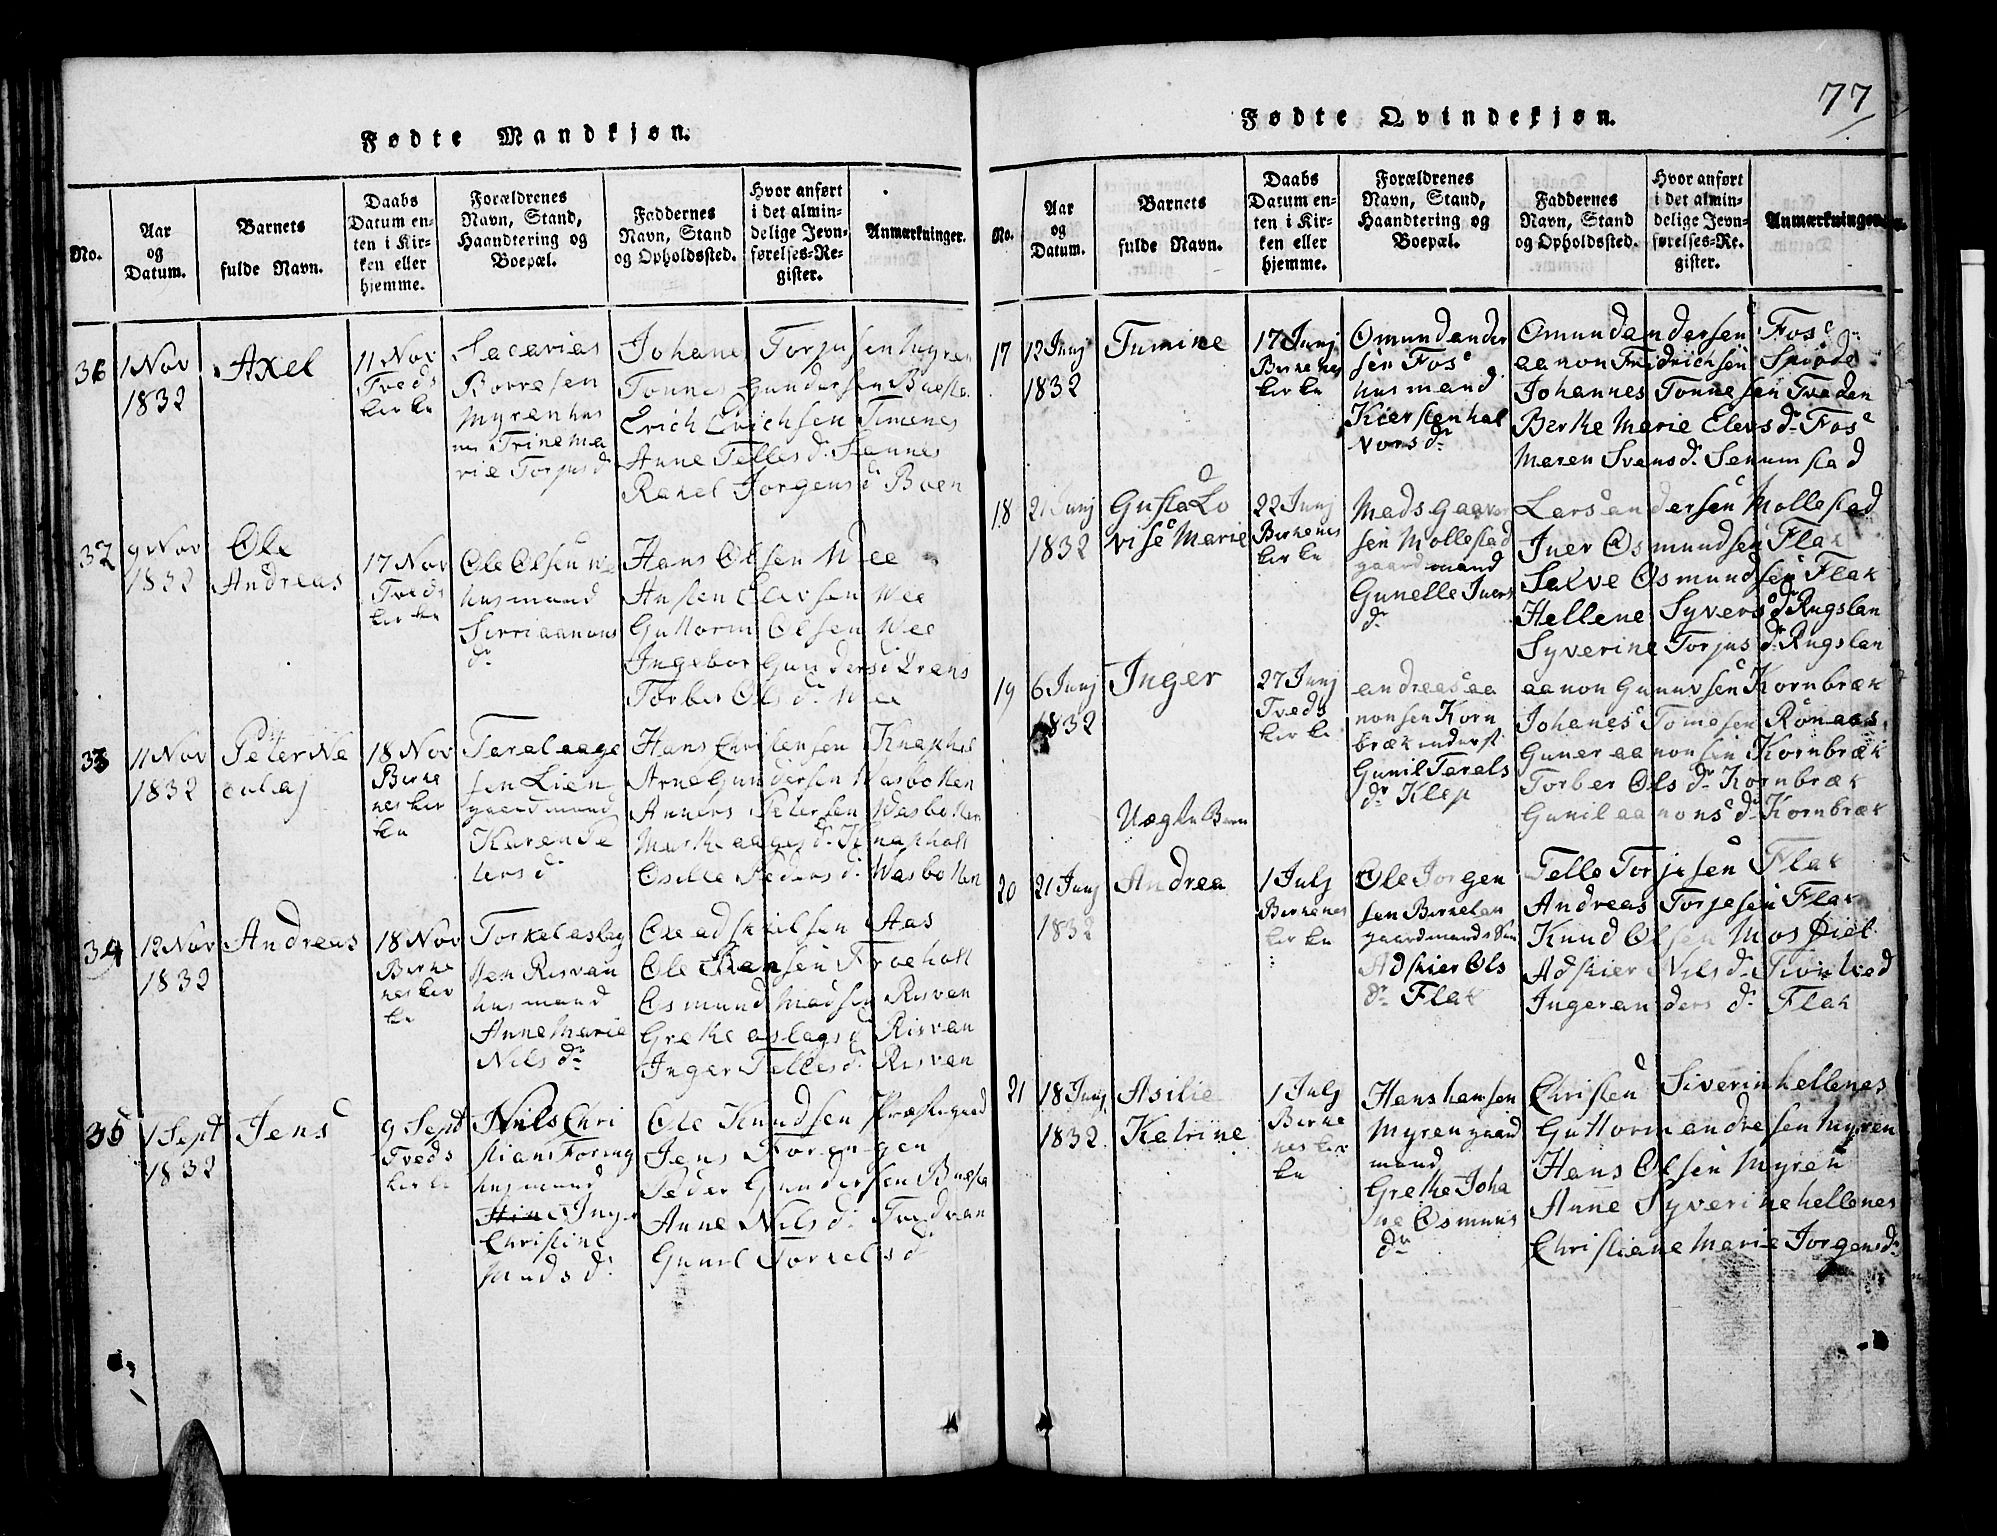 77
Fødte Mandkjøn.
No.
Aar
og
Datum.
Barnets
fulde Navn.
Daabs
Datum en-
ten i Kir-
ken eller
hjemme.
Forældrenes
Navn, Stand,
Haandtering og
Boepæl.
Faddernes
Navn, Stand
og Opholdssted.
Hvor anført
i det almin-
delige Jevn-
førelses-Re-
gister.
Anmærkninger.
1 Nov
1832
Axel
11 Nov
Tveds
kerke
Sacarias
Borresen
Myren hus
Trine Ma
rie Torjus d
Johanes Torjusen Myren
Tonnes Gundersen
Erich Erichsen Timenes
Anne Telles d.
Rakel Jorgens d Boen
32
9 Nov
1832
Ole
Andreas
17 Nov
Tveds
kerke
Ole Olsen We
husmand
Sirri aanons
dr
Hans Olsen Wee
Ansten Elevsen Wee
Guttorm Olsen Wee
Ingebor Gunders d Drans
Torber Ols d. Wee
33
11 Nov
1832
Peter Ne
colaj
18 Nov
Berke
nes ker
ke
Taral aage
sen Lien
gaardmand
Karen Pe
ters d
Hans Christensen Knaphol
Arne Gundersen Wasbotten
Anners Petersen Wasbotten
Marthe aages d. Knapholt
Osille Peders d. Wasbotten
34
12 Nov
1832
Andreas
18 Nov
Berke
nes ker
ke
Torkel aslag
sen Risvan
husmand
Anne Marie
Nils dr
Ole adskilsen Aas
Ole Hansen Froeholt
Osmund Madsen Risvan
Grethe aslags d Risvan
Inger Telles d. Risvan
35
1 Sept
1832
Jens
9 Sept
Tveds
kerke
Nils Chri
stians Foreng
husmand
Inge
Christine
Mads d.
Ole Knudsen Præstegaad
Jens Forengen
Peder Gundersen
Anne Nils d. Tvedvan
Gunil Torkels d
Fødte Qvindekjøn.
No.
Aar
og
Datum.
Barnets
fulde Navn.
Daabs
Datum en-
ten i Kir-
ken eller
hjemme.
Forældrenes
Navn, Stand,
Haandtering og
Boepæl.
Faddernes
Navn, Stand
og Opholdssted.
Hvor anført
i det almin-
delige Jevn-
førelses-Re-
gister.
Anmærkninger.
17
12 Junj
1832
Tumine
17 Junj
Berkenes
kerke
Omund ander
sen Fos
husmand
Kiersten hal
vors dr
Omund andersen Fos
aanon Fredrichsen
Johannes Tonnesen Tveden
Berthe Marie Elevs dr Fos
Maren Svens d. Senumstad
18
21 Junj
1832
Gusta Lo
vise Marie
22 Junj
Berkenes
kerke
Mads Gaavor
sen Mollestad
gaardmand
Gunelle Juers
dr
Lars andersen Mollestad
Juer Osmundsen Flak
Salve Osmundsen Flak
Hellene Syvers dr Rugslan
Syverine Torjus d. Rugslan
19
6 Junj
1832
Inger
Uægte Barn
27 Junj
Tveds
kerke
andreas aa
nonsen Korn
bræk inderst
Gunil Tarals
dr Klep
aanon Gunuvsen Kornbræk
Johanes Tomesen Rønaas
Guner aanonsen Kornbræk
Torber Ols dr Kornbræk
Gunil aanons d. Kornbræk
20
21 Junj
1832
Andrea
1 Julj
Berkenes
kerke
Ole Jorgen
sen Berkelan
gaardmands Søn
Adskier Ols
dr Flak
Telle Torjesen Flak
Andreas Torjesen Flak
Knud Olsen Mosfiel
Adskier Nils d. Tveitved
Inger anders d. Flak
21
18 Junj
1832.
Asilie
Katrine
1 Julj
Berke
nes ker
ke
Hans hansen
Myren gaard
mand
Grethe Joha
ne Osmuns
dr
Christen Siverin hellenes
Guttorm andresen Myren
Hans Olsen Myren
Anne Syverine hellenes
Christiane Marie Jorgens dr